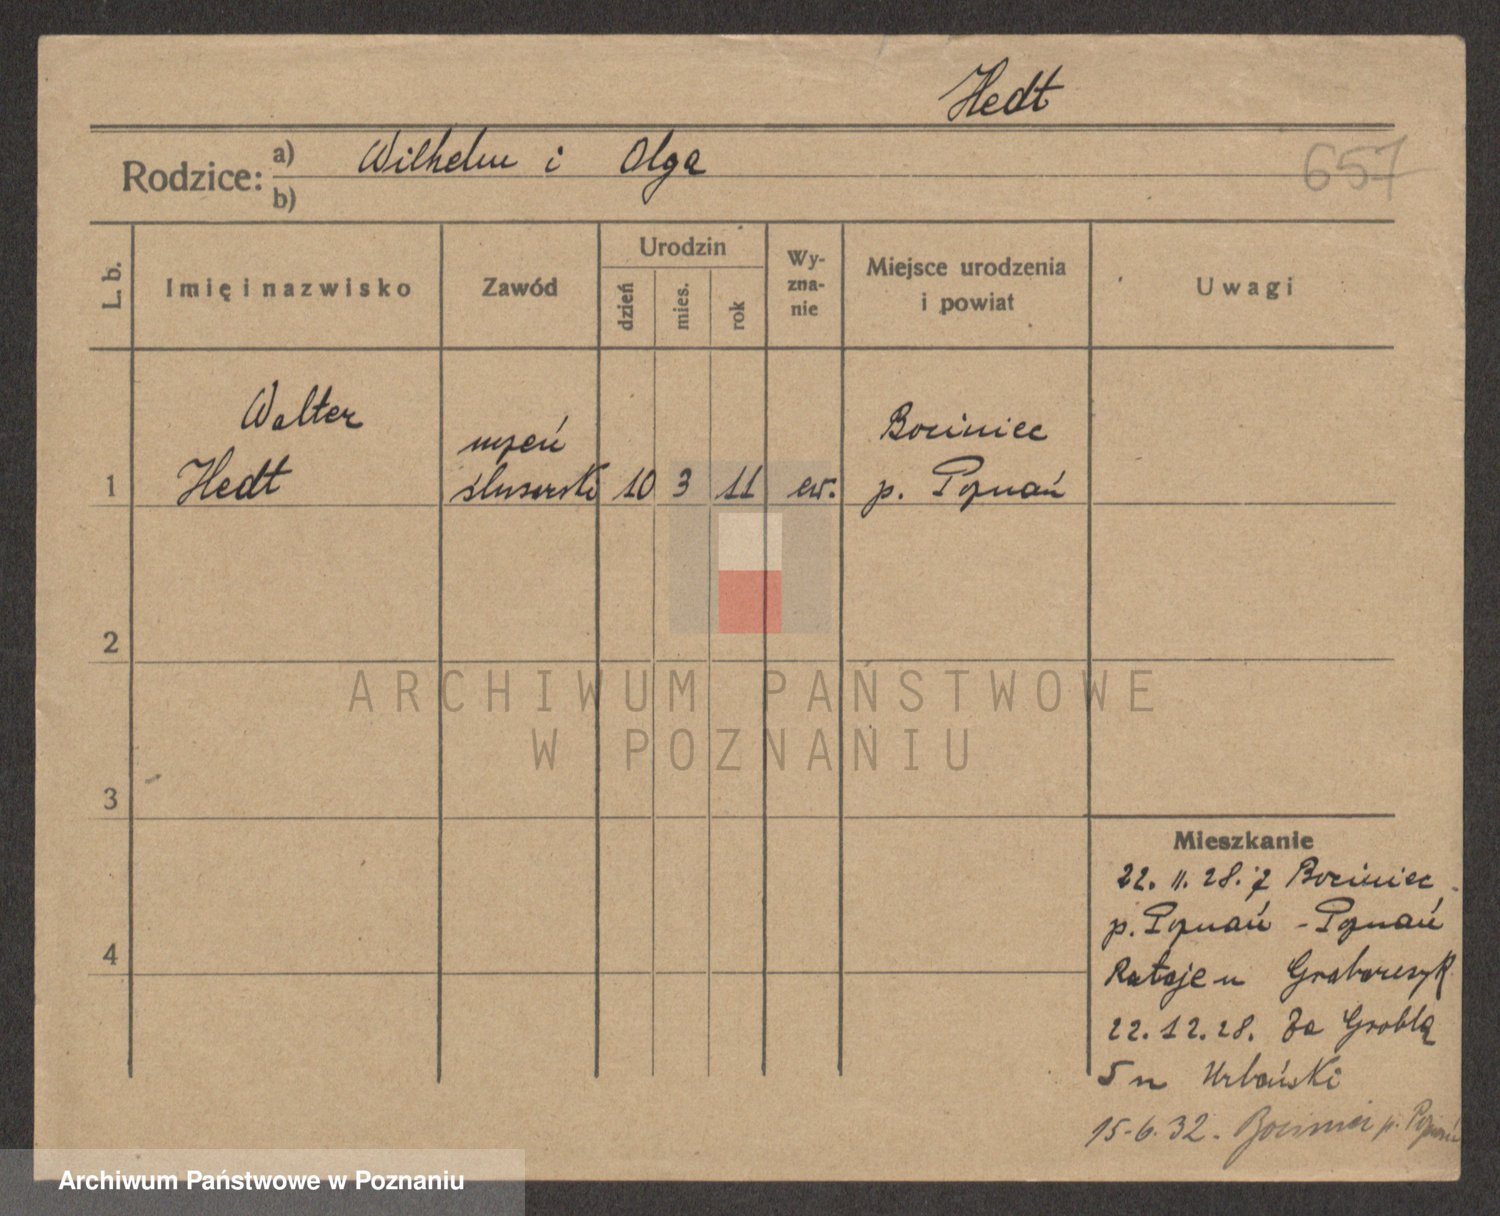 Hedt
Rodzice: a) Wilhelm i Olga
b)
657
L. b.
Imię i nazwisko
Zawód
Urodzin
dzień
mies.
rok
Wy-
zna-
nie
Miejsce urodzenia
i powiat
Uwagi
Walter
Hedt
uczeń
ślusarski
1
10 3 11 ew.
Bociniec
p. Poznań
2
3
4
Mieszkanie
22. 11. 28. z Bociniec
p. Poznań - Poznań
Rataje u
22. 12. 28. Za Groblą
5 u Urbański
15-6.32. Bociniec p. Poznań
ARCHIWUM PAŃSTWOWE
W POZNANIU
Archiwum Państwowe w Poznaniu